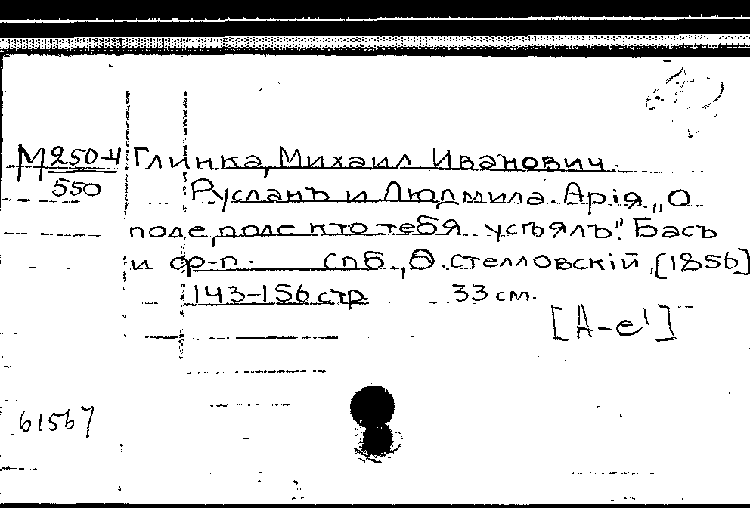 М250-4 Глинка, Михаил Иванович.
550 Русланъ и Людмила. Арія „О
поле, поле кто тебя усѣялъ". Басъ
и ф-п. спб., Ѳ. стелловскій, [1856]
143-156 стр 33 см.
[A-e¹]
61567